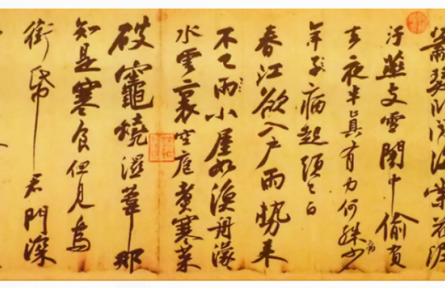 蕭瑟臥聞海棠花泥
汙燕支雪闇中偷負
去夜半真有力何殊少
年子病起頭已白
春江欲入戶雨勢來
不已雨小屋如漁舟濛
水雲裏空庖煮寒菜
破竈燒濕葦那
知是寒食但見烏
銜帋君門深